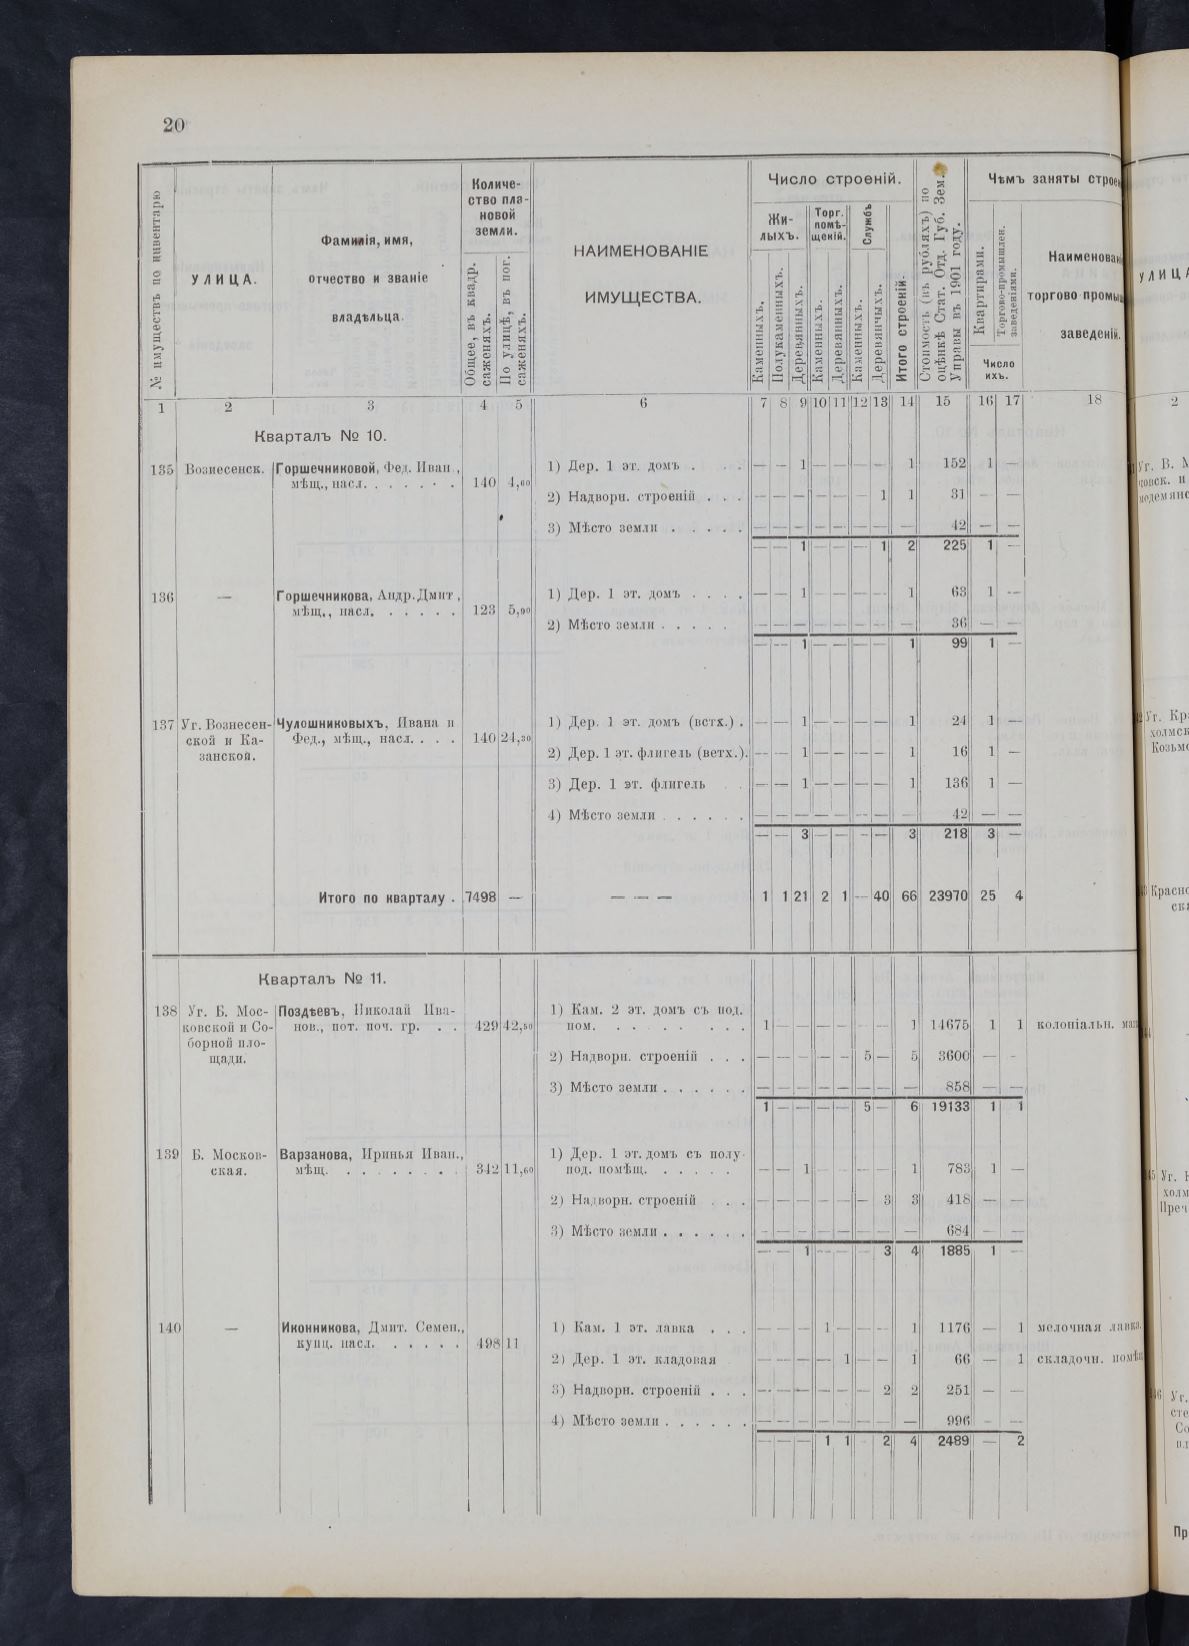 20
№ имуществъ по инвентарю
УЛИЦА.
Фамилія, имя,
отчество и званіе
владѣльца.
Количе-
ство пла-
новой
земли.
Общее, въ квадр.
саженяхъ.
По улицѣ, въ пог.
саженяхъ.
НАИМЕНОВАНІЕ
ИМУЩЕСТВА.
Число строеній.
Жи-
лыхъ.
Торг.
помѣ-
щеній.
Службъ
Каменныхъ.
Полукаменныхъ.
Деревянныхъ.
Каменныхъ.
Деревянныхъ.
Каменныхъ.
Деревянныхъ.
Итого строеній.
Стоимость (въ рубляхъ) по
оцѣнкѣ Стат. Отд. Губ. Зем.
Управы въ 1901 году.
Чѣмъ заняты строен
Квартирами.
Торгово-промышлен.
заведеніями.
Число
ихъ.
Наименован
торгово промыш
заведеній.
1 2 3 4 5 6 7 8 9 10 11 12 13 14 15 16 17 18
Кварталъ № 10.
135 Вознесенск. Горшечниковой, Фед. Иван., 1) Дер. 1 эт. домъ . . . — — 1 — — — — 1 152 1 —
мѣщ., насл. . . . . . . 140 4,60
2) Надворн. строеній . . . — — — — — — 1 1 31 — —
3) Мѣсто земли . . . . . — — — — — — — — 42 — —
— — 1 — — — 1 2 225 1 —
136 — Горшечникова, Андр. Дмит., 1) Дер. 1 эт. домъ . . . . — — 1 — — — — 1 63 1 —
мѣщ., насл. . . . . . 123 5,90
2) Мѣсто земли . . . . . — — — — — — — — 36 — —
— — 1 — — — — 1 99 1 —
137 Уг. Вознесен- Чулошниковыхъ, Ивана и 1) Дер. 1 эт. домъ (ветх.) . — — 1 — — — — 1 24 1 —
ской и Ка- Фед., мѣщ., насл. . . . 140 24,30
занской. 2) Дер. 1 эт. флигель (ветх.). — — 1 — — — — 1 16 1 —
3) Дер. 1 эт. флигель . . — — 1 — — — — 1 136 1 —
4) Мѣсто земли . . . . . . — — — — — — — — 42 — —
— — 3 — — — — 3 218 3 —
Итого по кварталу . 7498 — — — — 1 1 21 2 1 — 40 66 23970 25 4
Кварталъ № 11.
138 Уг. Б. Мос- Поздѣевъ, Николай Ива- 1) Кам. 2 эт. домъ съ под.
ковской и Со- нов., пот. поч. гр. . . 429 42,50 пом. . . . . . . . . 1 — — — — — — 1 14675 1 1 колоніальн. маг
борной пло-
щади. 2) Надворн. строеній . . . — — — — — 5 — 5 3600 — -
3) Мѣсто земли . . . . . . — — — — — — — — 858 — —
1 — — — — 5 — 6 19133 1 1
139 Б. Москов- Варзанова, Иринья Иван., 1) Дер. 1 эт. домъ съ полу-
ская. мѣщ. . . . . . . . . 342 11,60 под. помѣщ. . . . . . — — 1 — — — — 1 783 1 —
2) Надворн. строеній . . . — — — — — — 3 3 418 — —
3) Мѣсто земли . . . . . . — — — — — — — — 684 — —
— — 1 — — — 3 4 1885 1 —
140 — Иконникова, Дмит. Семен., 1) Кам. 1 эт. лавка . . . — — — 1 — — — 1 1176 — 1 мелочная лавка.
купц. насл. . . . . . 498 11
2) Дер. 1 эт. кладовая — — — — 1 — — 1 66 — 1 складочн. помѣщ
3) Надворн. строеній . . . — — — — — — 2 2 251 — —
4) Мѣсто земли . . . . . . — — — — — — — — 996 - —
— — — 1 1 - 2 4 2489 — 2
УЛИЦА
2
Уг. В. М
Уг. Кра
холмск
Козьмо
Красно
ска
Уг. К
холм
Преч
Уг.
сте
Со
пл
Пр